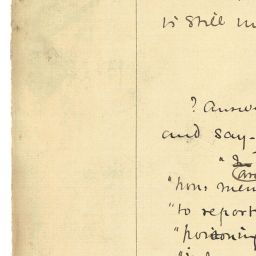 is still in
? Answ
and say-
"hon: mem
"to report
"poisoning